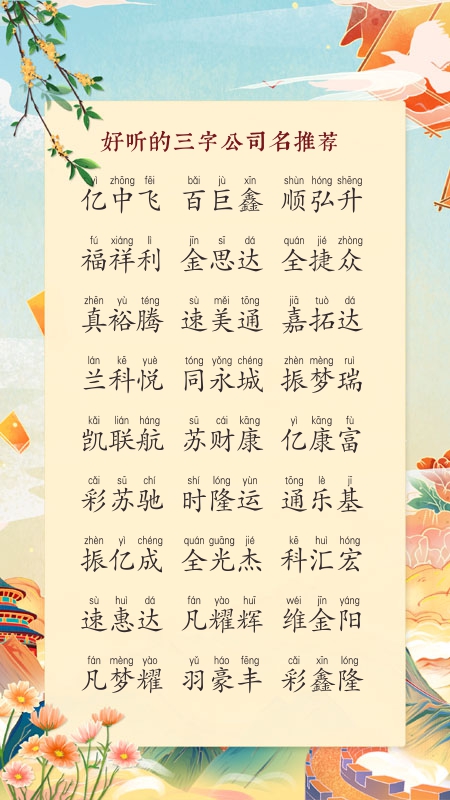 好听的三字公司名推荐
yì zhōng fēi bǎi jù xīn shùn hóng shēng
亿中飞 百巨鑫 顺弘升
fú xiáng lì jīn sī dá quán jié zhòng
福祥利 金思达 全捷众
zhēn yù téng sù měi tōng jiā tuò dá
真裕腾 速美通 嘉拓达
lán kē yuè tóng yǒng chéng zhèn mèng ruì
兰科悦 同永城 振梦瑞
kǎi lián háng sū cái kāng yì kāng fù
凯联航 苏财康 亿康富
cǎi sū chí shí lóng yùn tōng lè jī
彩苏驰 时隆运 通乐基
zhèn yì chéng quán guāng jié kē huì hóng
振亿成 全光杰 科汇宏
sù huì dá fán yào huī wéi jīn yáng
速惠达 凡耀辉 维金阳
fán mèng yào yǔ háo fēng cǎi xīn lóng
凡梦耀 羽豪丰 彩鑫隆